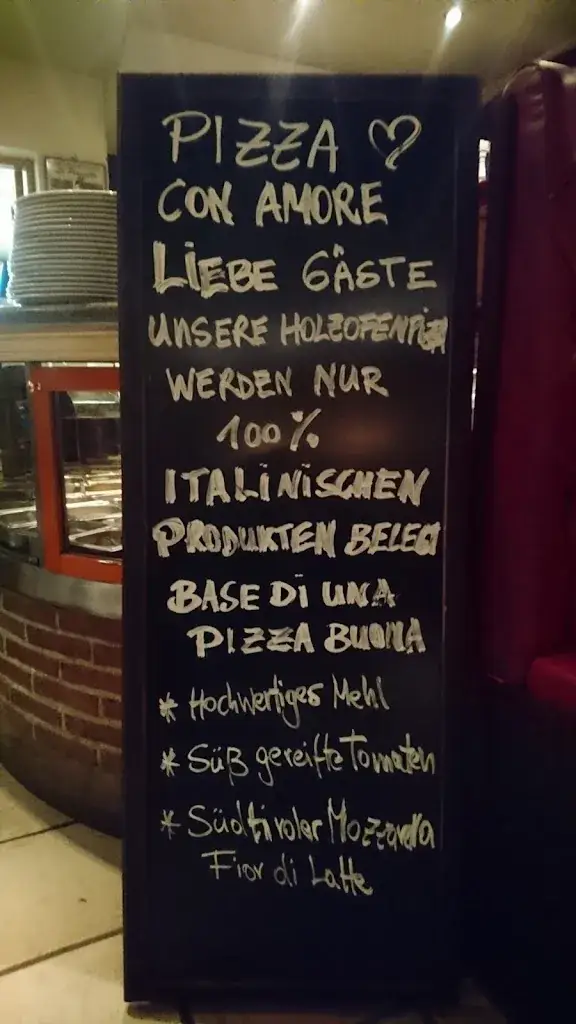 PIZZA ♡
CON AMORE
LIEBE GÄSTE
UNSERE HOLZOFENPIZZA
WERDEN NUR
100%
ITALINISCHEN
PRODUKTEN BELEGT
BASE DI UNA
PIZZA BUONA
* Hochwertiges Mehl
* Süß gereifte Tomaten
* Südtiroler Mozzarella
Fior di Latte